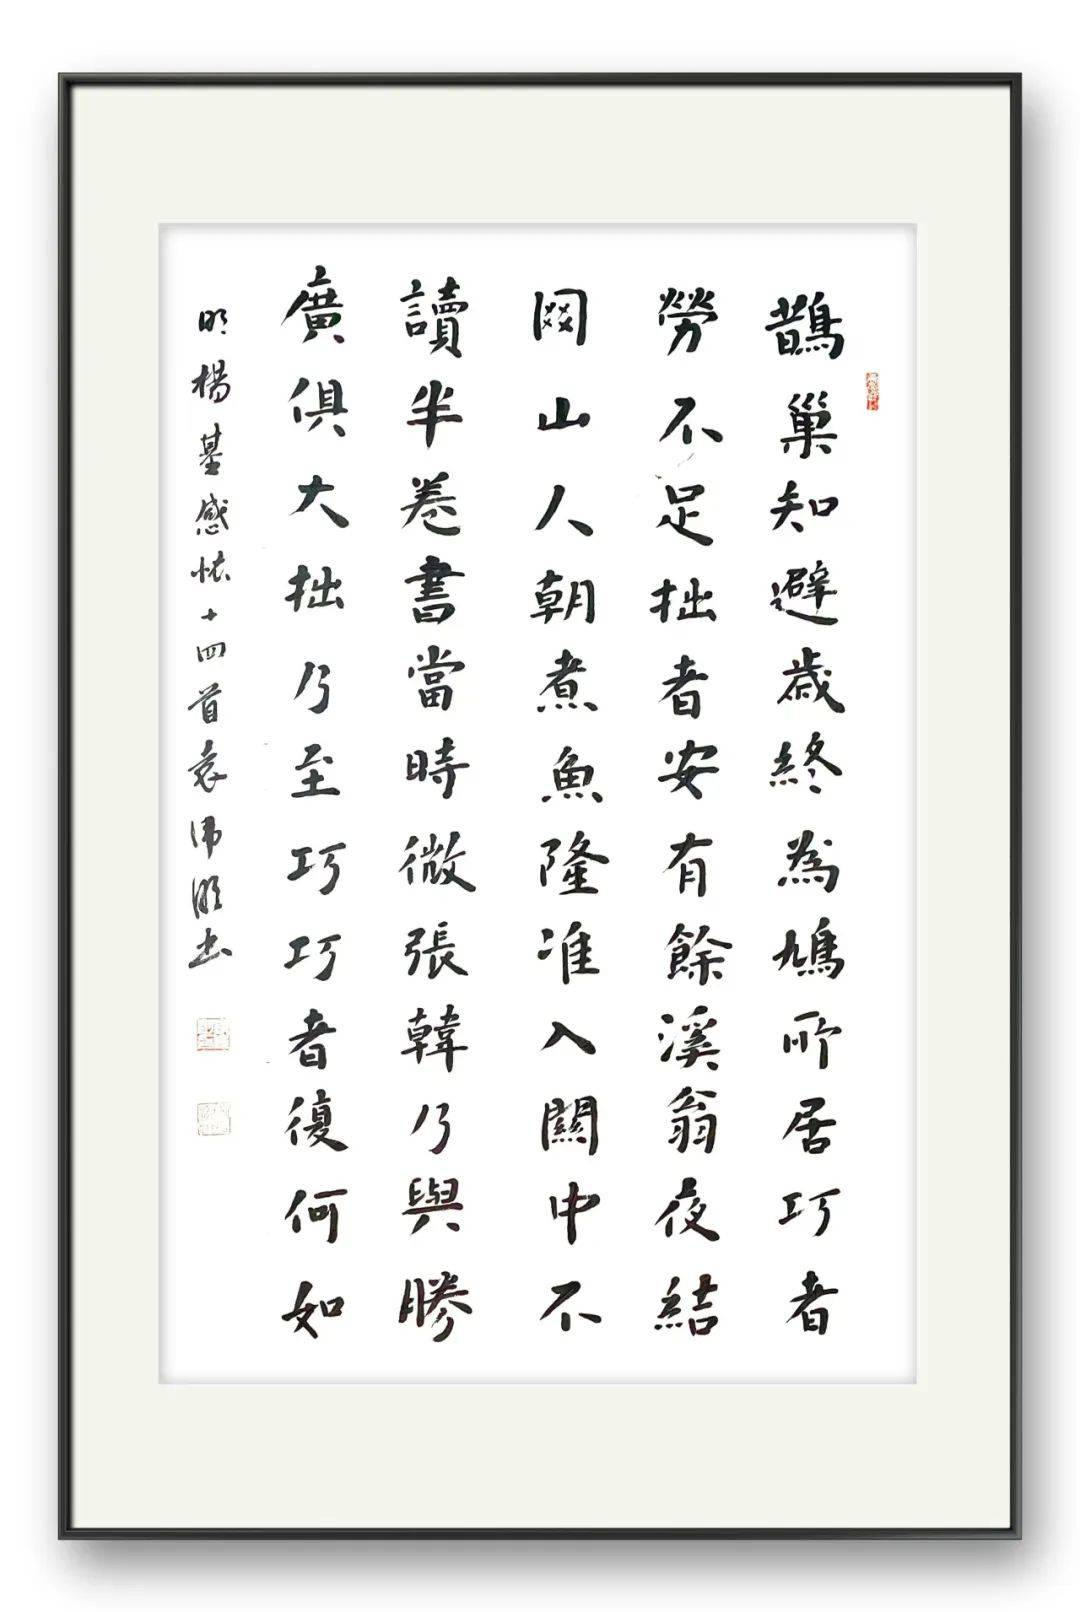 鵲巢知避歲終為鳩所居巧者
勞不足拙者安有餘溪翁夜結
网山人朝煮魚隆准入關中不
讀半卷書當時微張韓乃與勝
廣俱大拙乃至巧巧者復何如
明楊基感怀十四首袁书